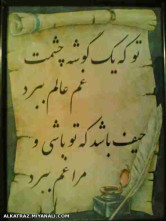 تو که یک گوشه چشمت
غم عالم ببرد
حیف باشد که تو باشی و
مرا غم ببرد
ALKATRAZ.MIYANALI.COM